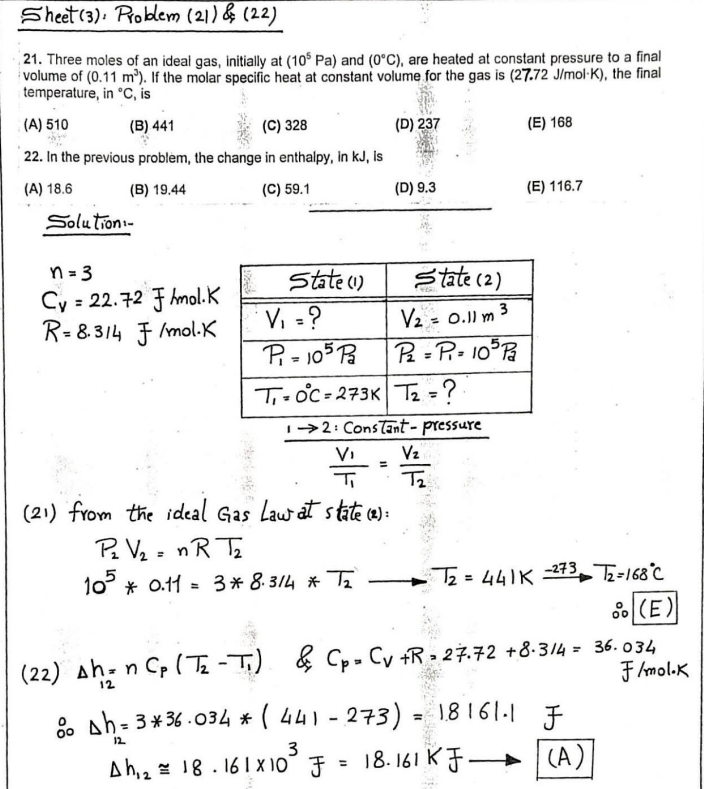 Sheet(3): Problem (21) & (22)
21. Three moles of an ideal gas, initially at (10⁵ Pa) and (0°C), are heated at constant pressure to a final
volume of (0.11 m³). If the molar specific heat at constant volume for the gas is (27.72 J/mol·K), the final
temperature, in °C, is
(A) 510 (B) 441 (C) 328 (D) 237 (E) 168
22. In the previous problem, the change in enthalpy, in kJ, is
(A) 18.6 (B) 19.44 (C) 59.1 (D) 9.3 (E) 116.7
Solution:-
n = 3
Cv = 22.72 J/mol.K
R = 8.314 J/mol.K
State (1) State (2)
V₁ = ? V₂ = 0.11 m³
P₁ = 10⁵ Pa P₂ = P₁ = 10⁵ Pa
T₁ = 0°C = 273K T₂ = ?
1 → 2: Constant-pressure
V₁/T₁ = V₂/T₂
(21) from the ideal Gas Law at state (2):
P₂ V₂ = n R T₂
10⁵ * 0.11 = 3 * 8.314 * T₂ → T₂ = 441K -273→ T₂ = 168°C
∴ (E)
(22) Δh₁₂ = n Cp (T₂ - T₁) & Cp = Cv + R = 27.72 + 8.314 = 36.034
J/mol.K
∴ Δh₁₂ = 3 * 36.034 * (441 - 273) = 18161.1 J
Δh₁₂ ≅ 18.161 x 10³ J = 18.161 KJ → (A)